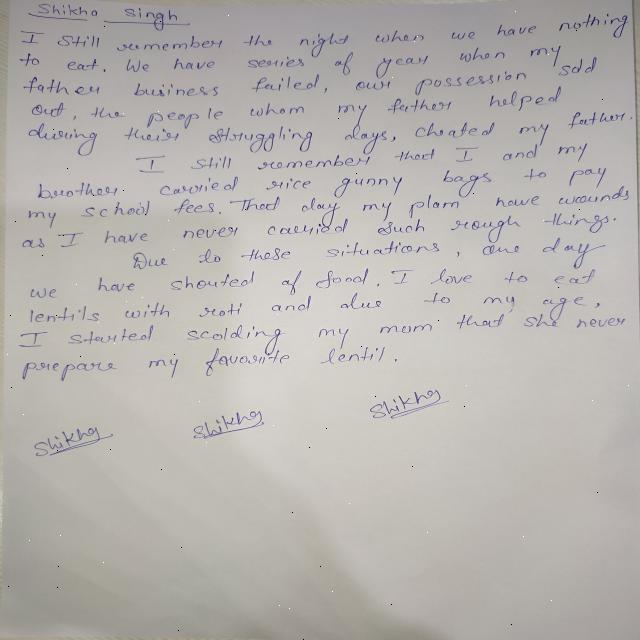 Shikha Singh
I Still remember the night when we have nothing
to eat. We have series of year when my
father business failed, our possession sold
out, the people whom my father helped
during their struggling days, cheated my father.
I still remember that I and my
brother carried rice gunny bags to pay
my school fees. That day my plam have wounds
as I have never carried such rough things.
Due to these situations, one day
we have shouted of food. I love to eat
lentils with roti and due to my age,
I started scolding my mom that she never
prepare my favorite lentil.
Shikha Shikha Shikha